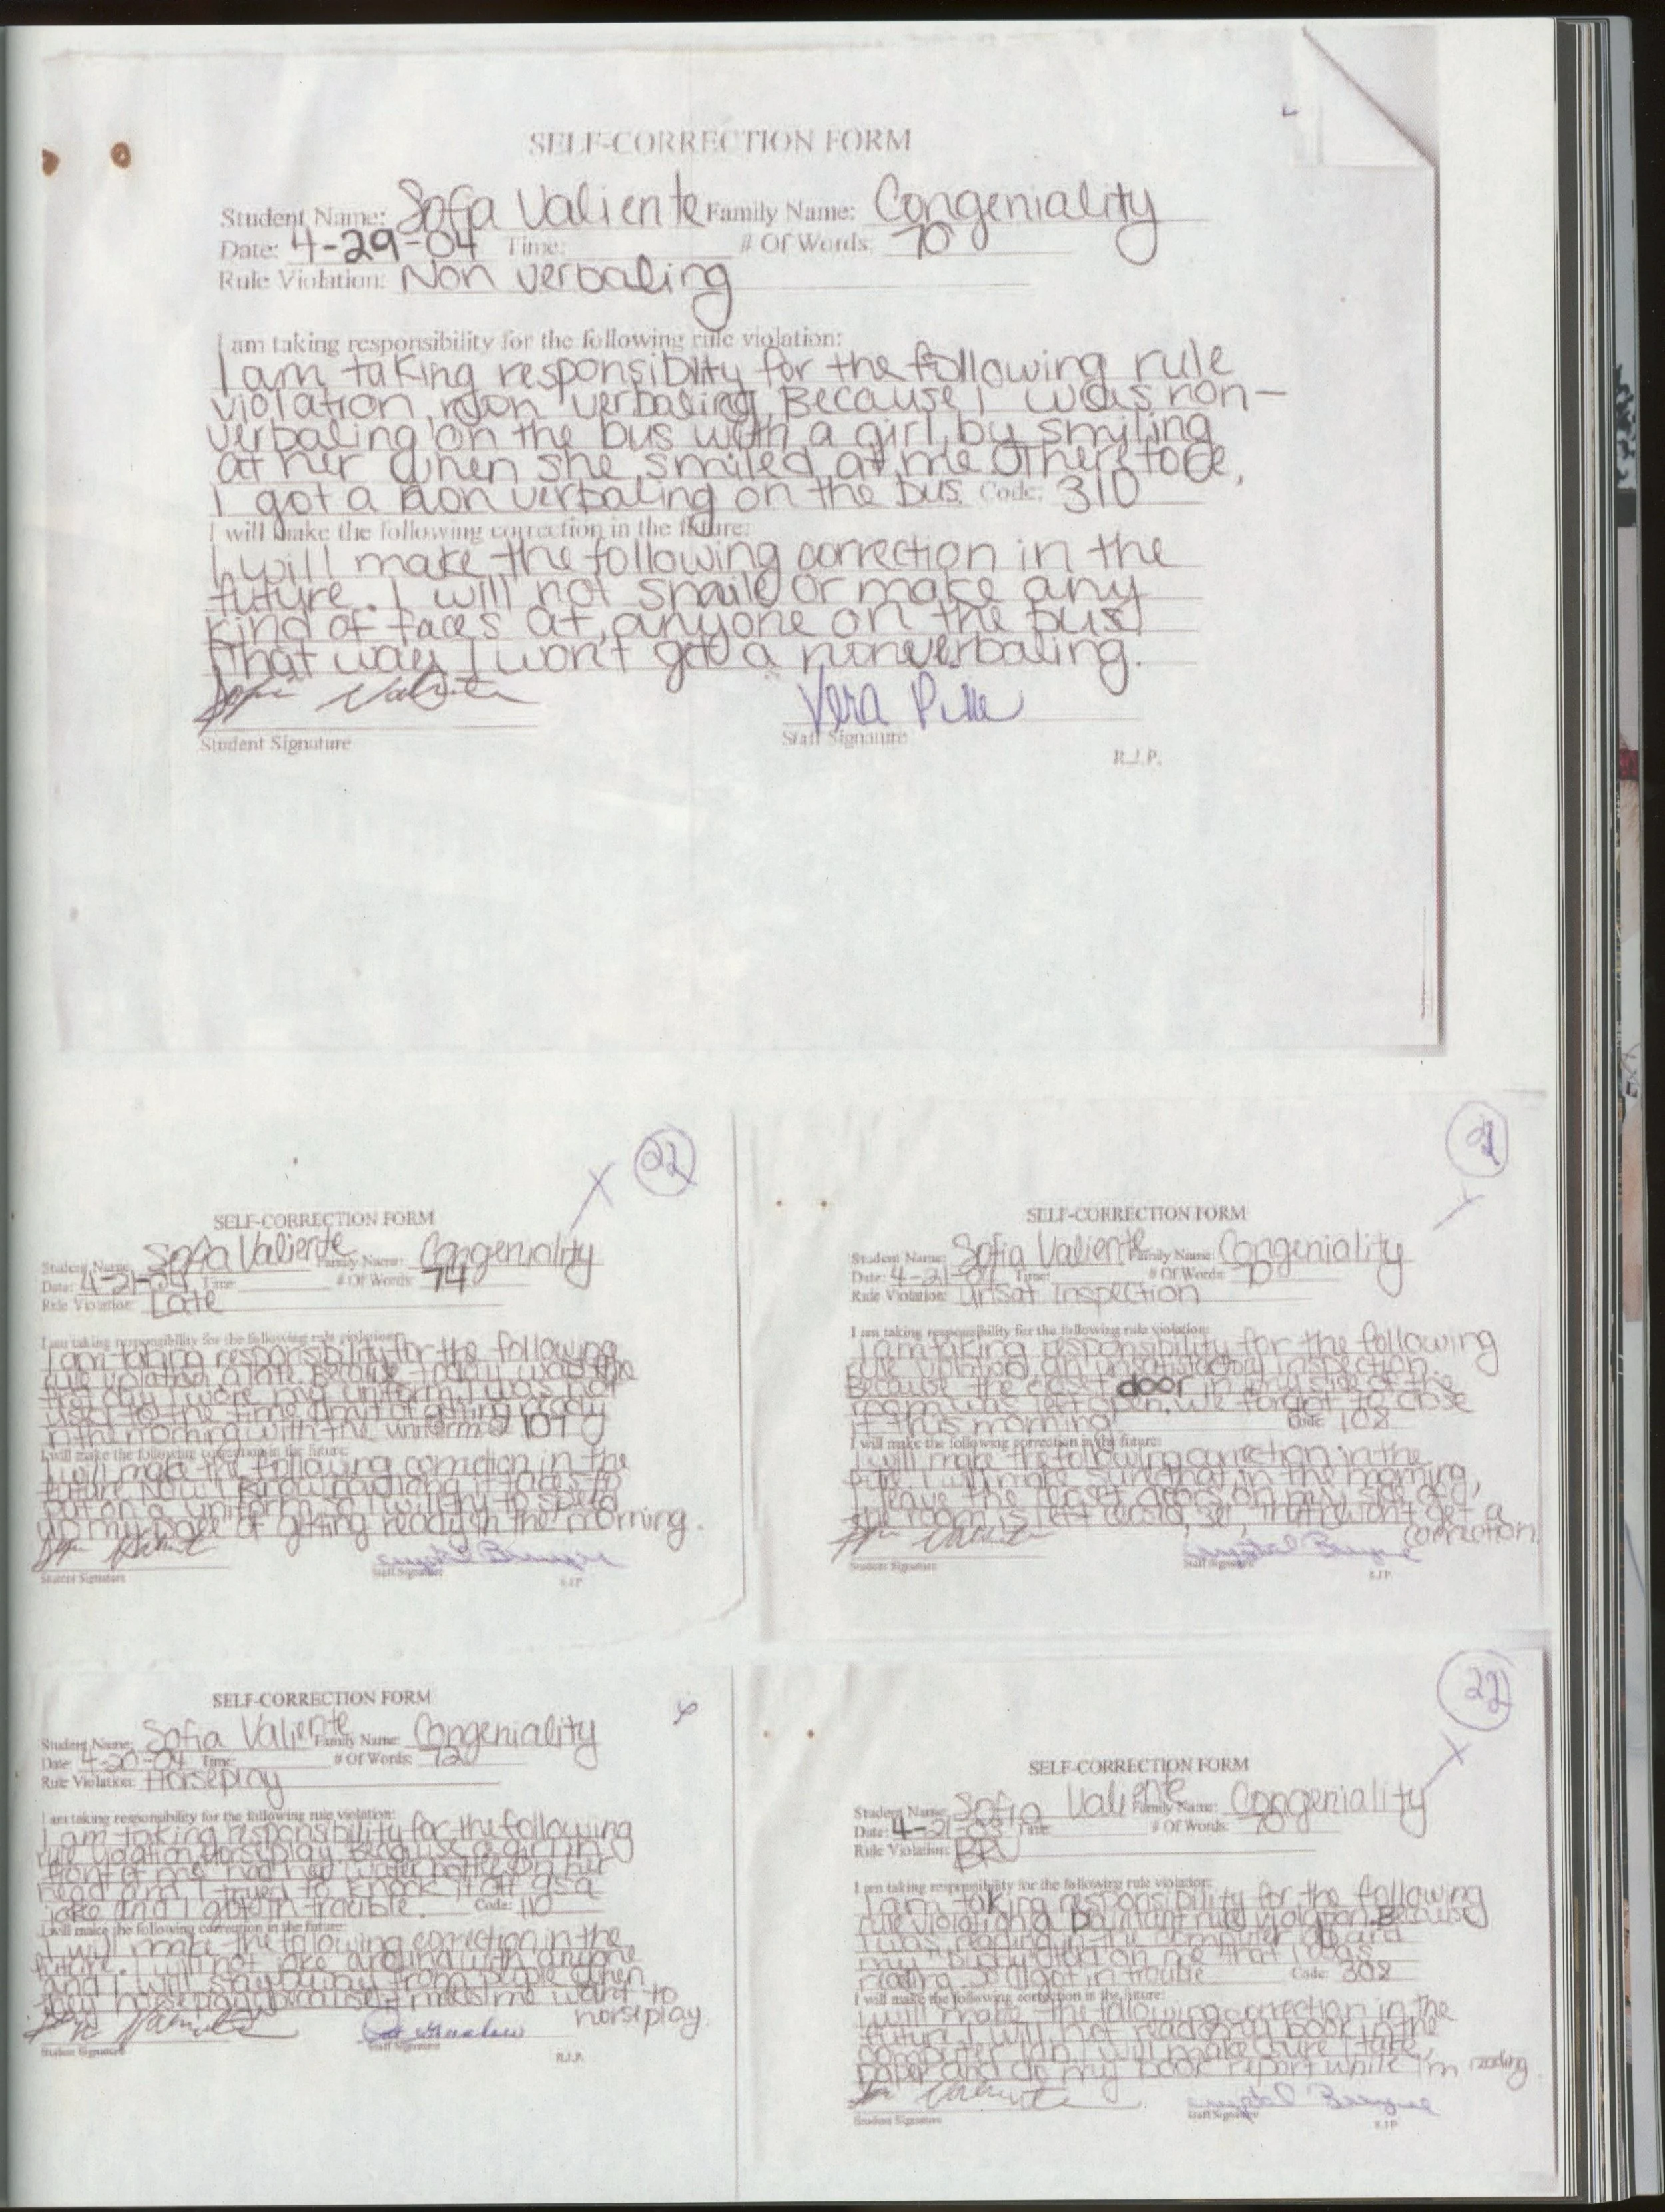 SELF-CORRECTION FORM
Student Name: Sofia Valiente Family Name: Congeniality
Date: 4-29-04 Time: # Of Words: 70
Rule Violation: Non verbaling
I am taking responsibility for the following rule violation:
I am taking responsibility for the following rule
violation, non verbaling, Because I was non-
verbaling on the bus with a girl, by smiling
at her when she smiled at me therefore,
I got a non verbaling on the bus. Code: 310
I will make the following correction in the future:
I will make the following correction in the
future. I will not smile or make any
kind of faces at anyone on the bus
that way I won't get a nonverbaling.
Sofia Valiente
Vera
Student Signature
Staff Signature
R.J.P.
22
SELF-CORRECTION FORM
Student Name: Sofia Valiente Family Name: Congeniality
Date: 4-21-04 Time: # Of Words: 74
Rule Violation: Late
I am taking responsibility for the following rule violation:
I am taking responsibility for the following
rule violation, a late. Because today was the
first day I wore my uniform, I was not
used to the time limit of getting ready
in the morning with the uniform. 107
I will make the following correction in the future:
I will make the following correction in the
future. Now I know how long it takes to
put on a uniform so I will try to speed
up my pace of getting ready in the morning.
Sofia Valiente
Crystal
Student Signature
Staff Signature
R.J.P.
21
SELF-CORRECTION FORM
Student Name: Sofia Valiente Family Name: Congeniality
Date: 4-21-04 Time: # Of Words: 70
Rule Violation: Unsat Inspection
I am taking responsibility for the following rule violation:
I am taking responsibility for the following
rule violation, an unsatisfactory inspection.
Because the closet door in my side of the
room was left open. We forgot to close
it this morning Code: 108
I will make the following correction in the future:
I will make the following correction in the
future. I will make sure that in the morning,
I leave the closet doors on my side of
the room is left closed, so, I won't get a
correction
Sofia Valiente
Crystal
Student Signature
Staff Signature
R.J.P.
SELF-CORRECTION FORM
Student Name: Sofia Valiente Family Name: Congeniality
Date: 4-20-04 Time: # Of Words: 72
Rule Violation: Horseplay
I am taking responsibility for the following rule violation:
I am taking responsibility for the following
rule violation, Horseplay. Because a girl in
front of me had her water bottle on her
head and I tryed to knock it off as a
joke and I got in trouble. Code: 110
I will make the following correction in the future:
I will make the following correction in the
future. I will not joke around with anyone
and I will stay away from people when
they horseplay because it makes me want to
horseplay.
Sofia Valiente
Student Signature
Staff Signature
R.J.P.
22
SELF-CORRECTION FORM
Student Name: Sofia Valiente Family Name: Congeniality
Date: 4-21-03 Time: # Of Words: 70
Rule Violation: BRV
I am taking responsibility for the following rule violation:
I am taking responsibility for the following
rule violation, a rule violation. Because
I was reading in the computer lab and
my buddy told on me that I was
reading. So I got in trouble Code: 308
I will make the following correction in the future:
I will make the following correction in the
future. I will not read my book in the
computer lab. I will make sure I take
paper and do my book report while I'm reading.
Sofia Valiente
Crystal
Student Signature
Staff Signature
R.J.P.